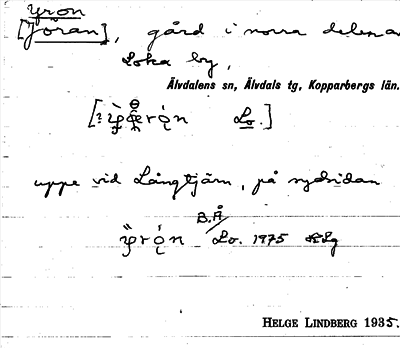 yron
[Jöran], gård i norra delen a
Loka by,
Älvdalens sn, Älvdals tg, Kopparbergs län.
Lo.]
uppe vid Långtjärn, på sydsidan
B.Å
Lo. 1975
HELGE LINDBERG 1935.